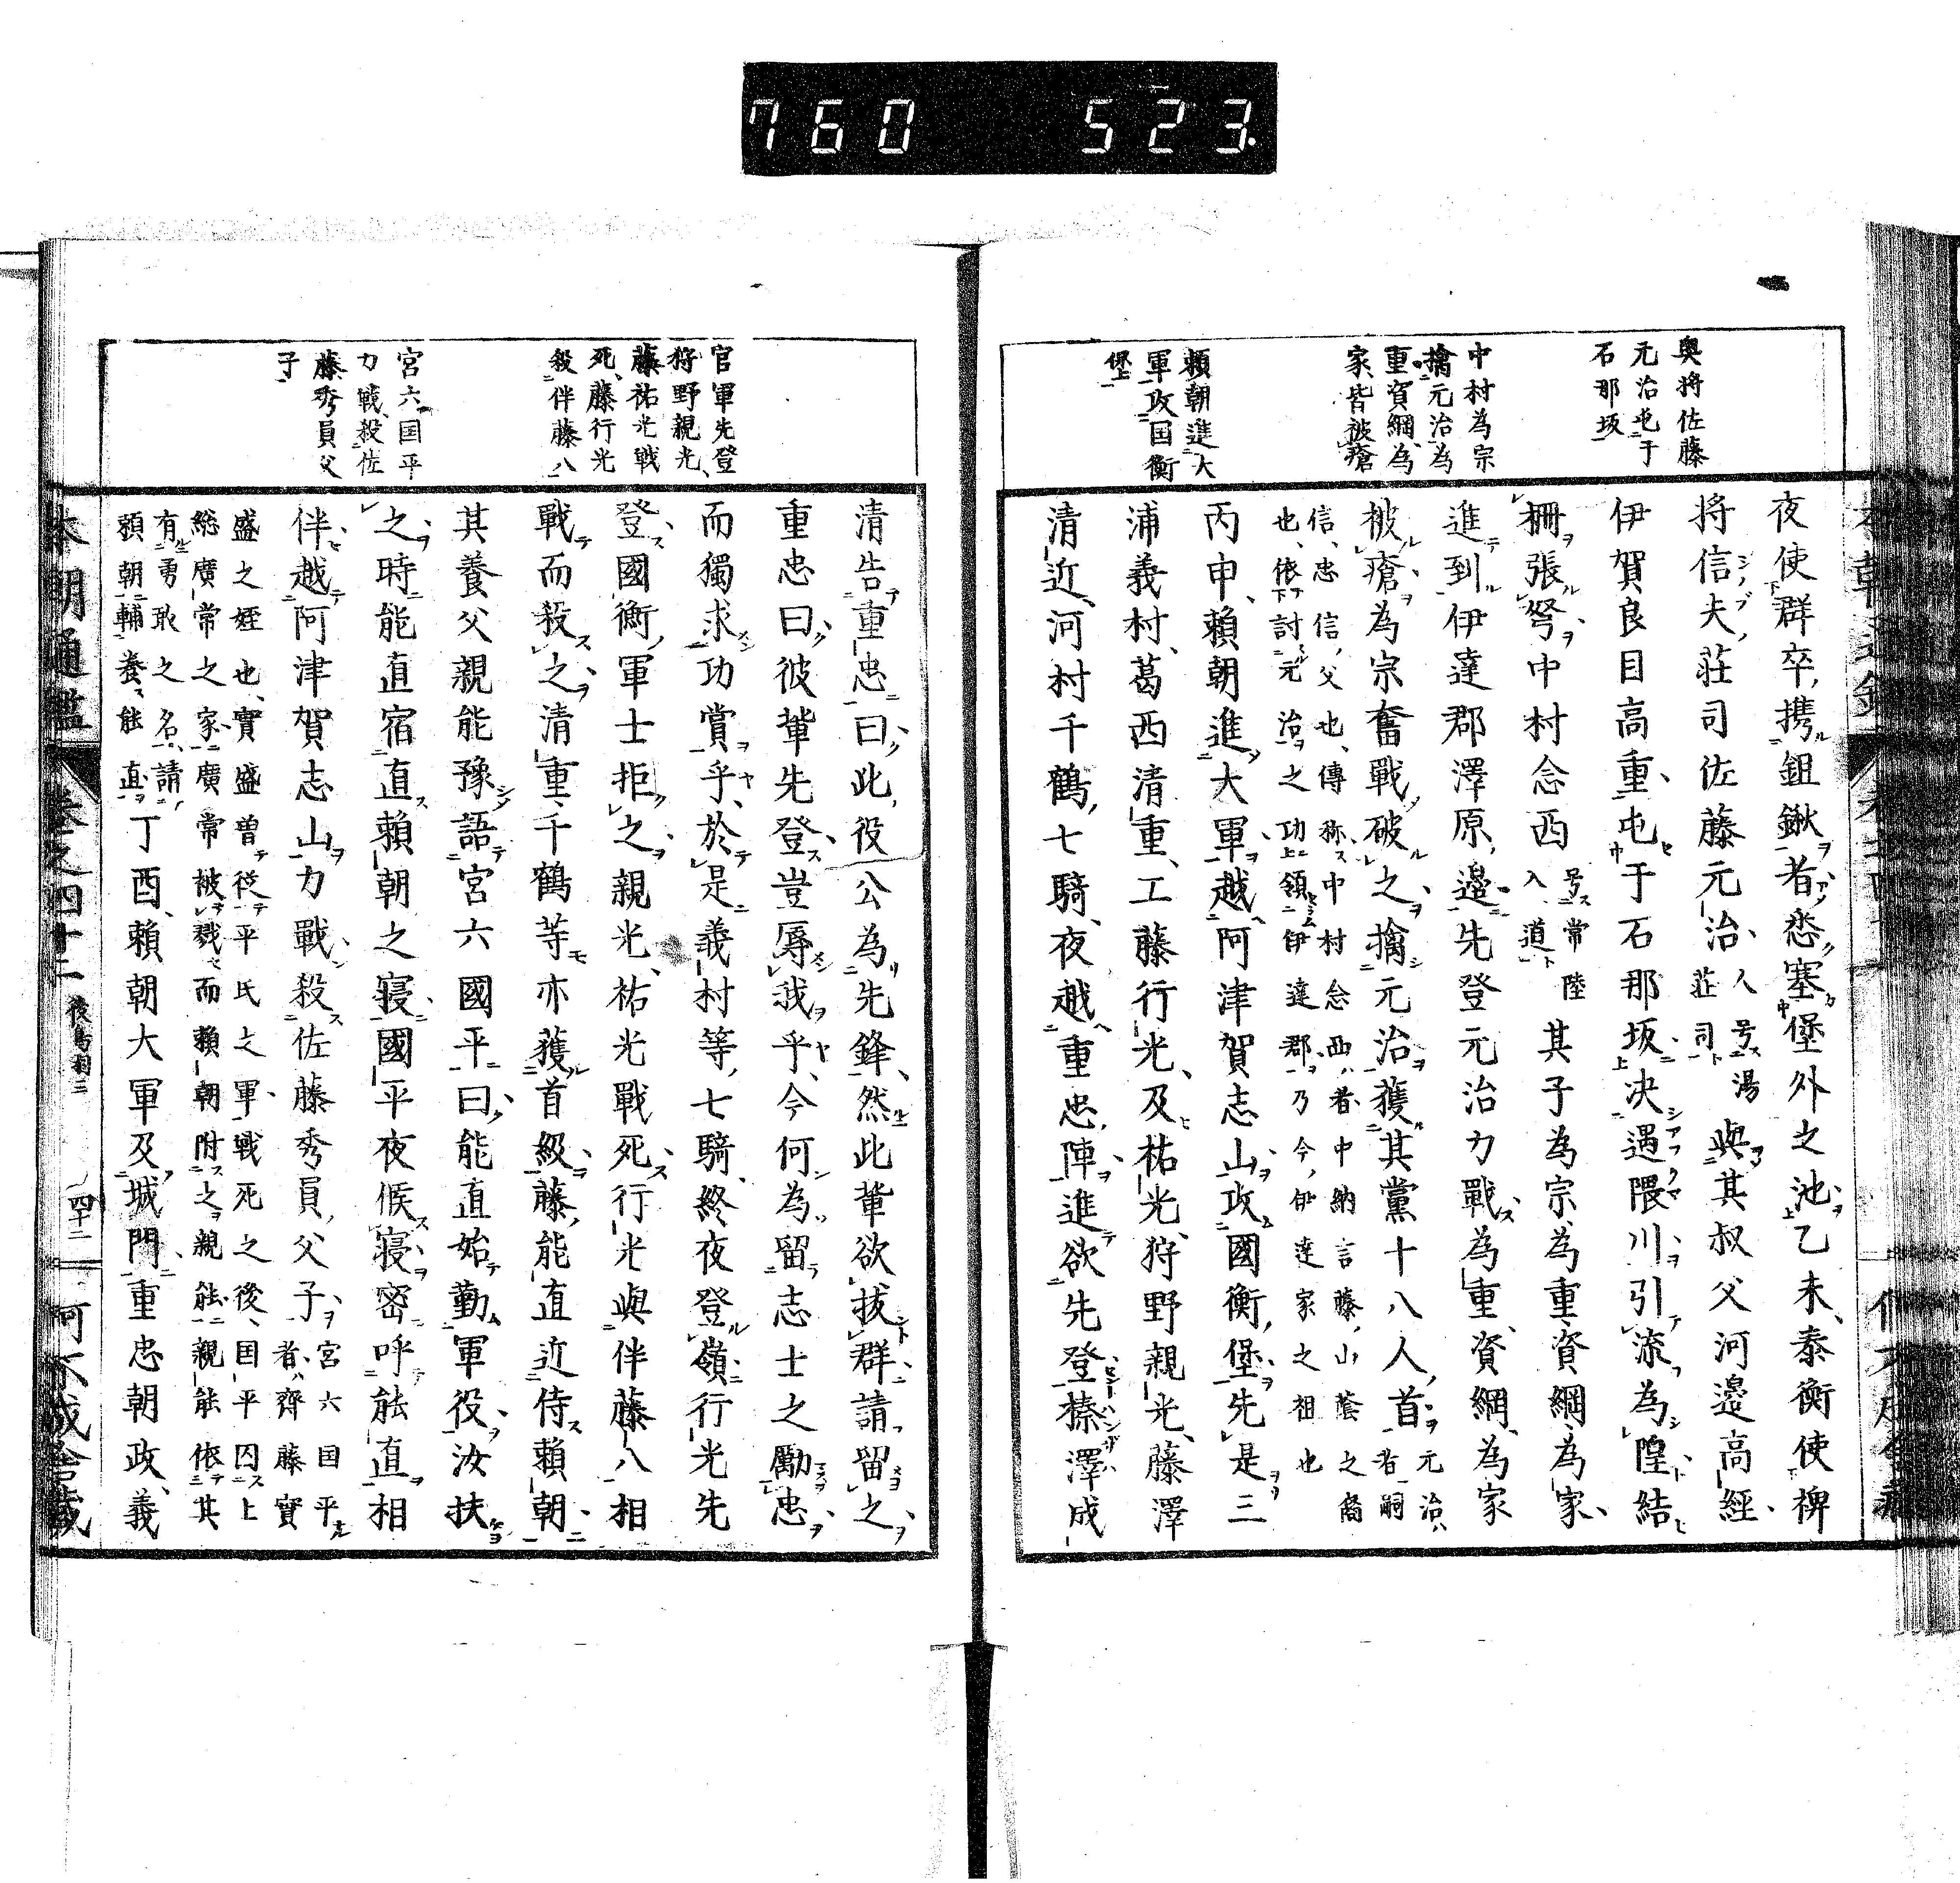 760 523.
奥将佐藤
元治屯于
石那坂
中村為宗
擒元治為
重資綱為
家皆被瘡
頼朝進大
軍攻国衡
堡
夜使群卒携鉏鍬者悉塞堡外之池乙未泰衡使裨
将信夫荘司佐藤元治人号湯荘司與其叔父河邊高經
伊賀良目高重屯于石那坂決遇隈川引流為隍結
柵張弩中村念西号常陸入道其子為宗為重資綱為家
進到伊達郡澤原邊先登元治力戰為重資綱為家
被瘡為宗奮戰破之擒元治獲其黨十八人首元治者嗣
信忠信父也傳称中村念西者中納言藤山蔭之裔
也依討元治之功領伊達郡乃今伊達家之祖也
丙申頼朝進大軍越阿津賀志山攻國衡堡先是三
浦義村葛西清重工藤行光及祐光狩野親光藤澤
清近河村千鶴七騎夜越重忠陣進欲先登榛澤成
官軍先登
狩野親光
藤祐光戦
死藤行光
殺伴藤八
宮六国平
力戰殺佐
藤秀員父
子
清告重忠曰此役公為先鋒然此輩欲抜群請留之
重忠曰彼輩先登豈辱我乎今何為留志士之勵忠
而獨求功賞乎於是義村等七騎終夜登嶺行光先
登國衡軍士拒之親光祐光戰死行光與伴藤八相
戰而殺之清重千鶴等亦獲首級藤能直近侍頼朝
其養父親能豫語宮六國平曰能直始勤軍役汝扶
之時能直宿直頼朝之寝國平夜候寝密呼能直相
伴越阿津賀志山力戰殺佐藤秀員父子宮六国平者齊藤實
盛之姪也實盛曽従平氏之軍戦死之後国平囚上
総廣常之家廣常被戮而頼朝附之親能親能依其
有勇敢之名請頼朝輔養能直丁酉頼朝大軍及城門重忠朝政義
本朝通鑑 巻之四十二 後鳥羽二 四十二